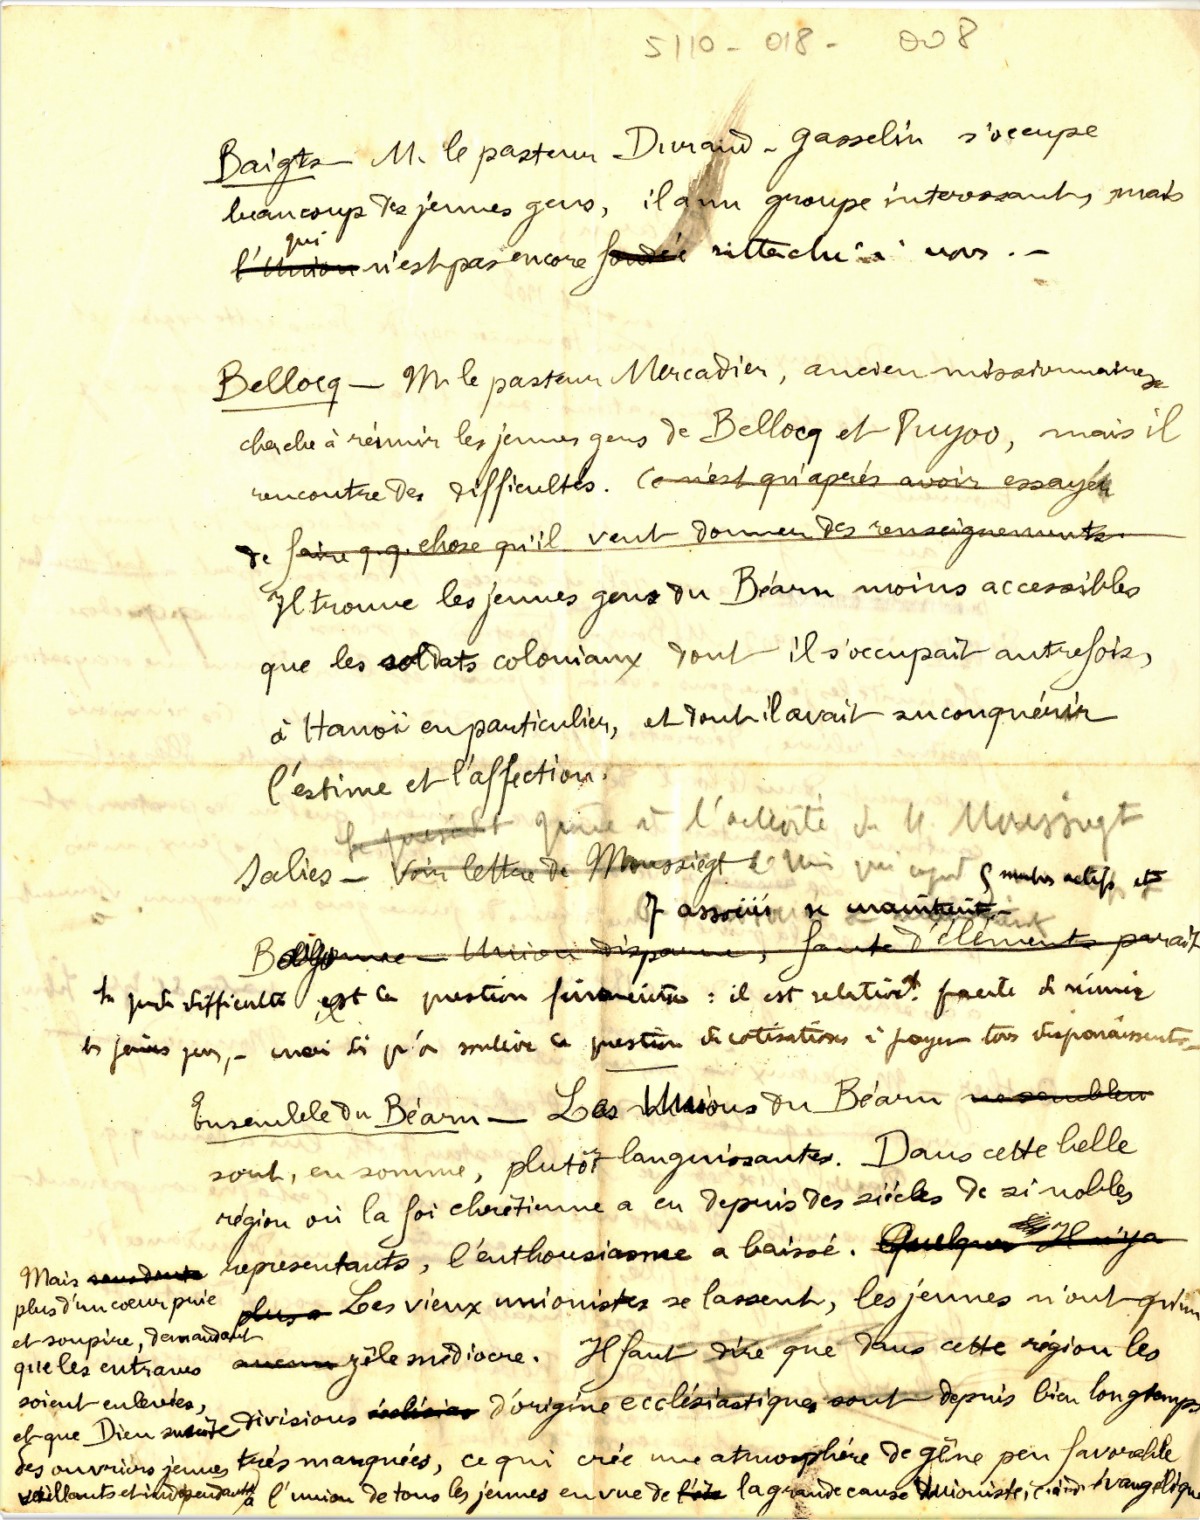 5110 - 018 - 008
Baigts — M. le pasteur Durand-Gasselin s'occupe
beaucoup des jeunes gens, il a un groupe interessant, mais
qui
l'Union n'est pas encore fondée rattaché à nous. —
Bellocq — M. le pasteur Mercadier, ancien missionnaire
cherche à réunir les jeunes gens de Bellocq et Puyoo, mais il
rencontre des difficultés. Ce n'est qu'après avoir essayé
de faire q.q. chose qu'il veut donner des renseignements.
Il trouve les jeunes gens du Béarn moins accessibles
que les soldats coloniaux dont il s'occupait autrefois,
à Hanoï en particulier, et dont il avait su conquérir
l'estime et l'affection.
grâce à l'activité de M Moussiegt
Salies — Voir lettre de Moussiegt qui 5 membres actifs et
7 associés se maintient —
Union disparue, faute d'éléments paraît
la difficulté est la question financière : il est relativt facile de réunir
les jeunes gens, — mais si qu'on soulève la question de cotisations à payer tous disparaissent —
Ensemble du Béarn — Les Unions du Béarn ne semblen
sont, en somme, plutôt languissantes. Dans cette belle
région où la foi chrétienne a eu depuis des siècles de si nobles
representants, l'enthousiasme a baissé. Quelque Il n'y a
plus Les vieux unionistes se lassent, les jeunes n'ont qu'un
aucun zèle médiocre. Il faut dire que dans cette région les
divisions d'origine ecclésiastique sont depuis bien longtemps
très marquées, ce qui crée une atmosphère de gêne peu favorable
à l'union de tous les jeunes en vue de la grande cause Unioniste, c.à.d. évangélique
Mais sans doute
plus d'un coeur prie
et soupire, demandant
que les entraves
soient enlevées,
et que Dieu suscite
des ouvriers jeunes
vaillants et indépendants